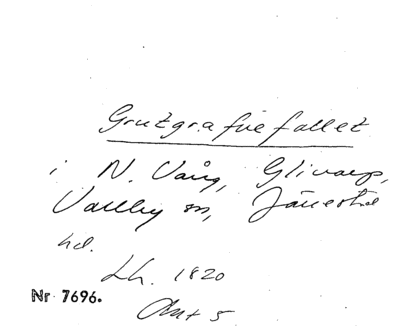 Grutgravefallet
i N. Vång, Glivarp,
Vallby sn, Järrestad
hd.
Lh. 1820
Nr 7696.
Akt 5